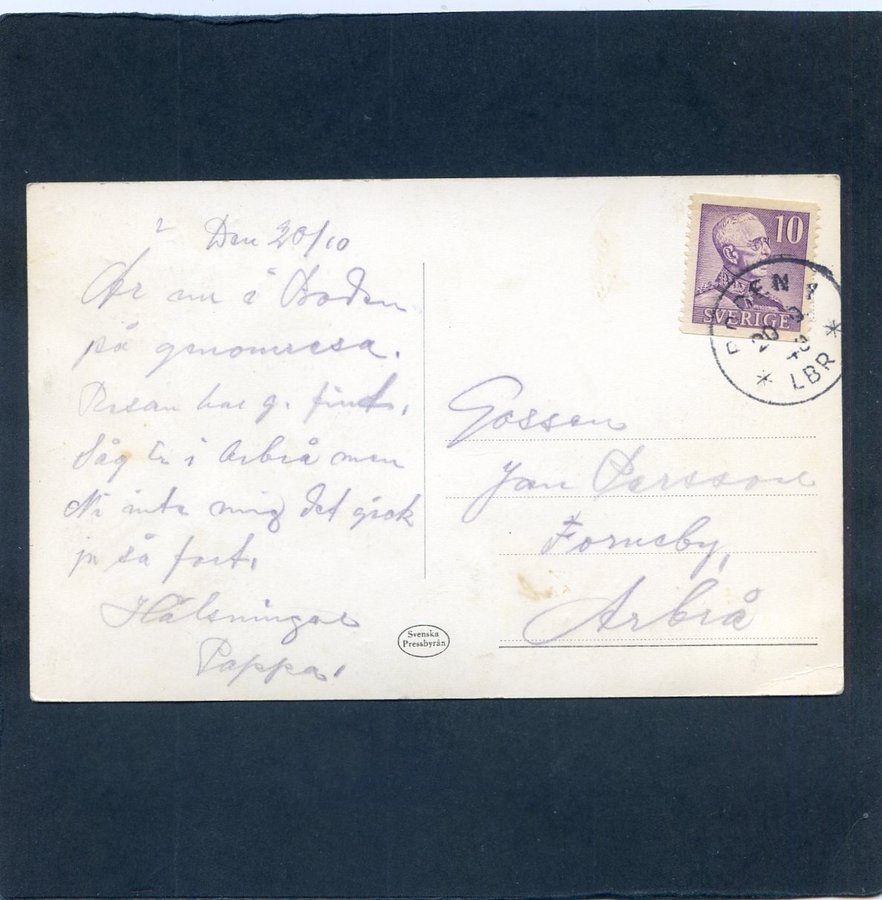 Den 20/10
Är nu i Boden
på genomresa.
Resan har g. fint,
Såg Er i Arbrå men
Ni inte mig det gick
ju så fort.
Hälsningar
Pappa.
10
SVERIGE
BODEN 4
20
LBR
Gossen
Jan Persson
Forneby,
Arbrå
Svenska
Pressbyrån